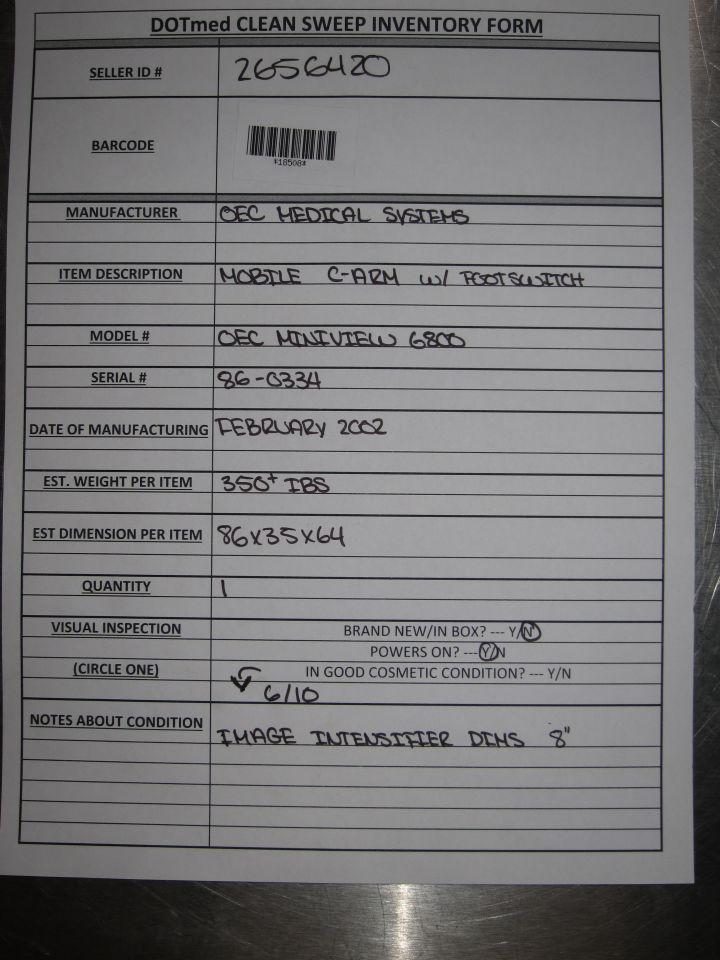 DOTmed CLEAN SWEEP INVENTORY FORM
SELLER ID # 2656420
BARCODE
*18508*
MANUFACTURER OEC MEDICAL SYSTEMS
ITEM DESCRIPTION MOBILE C-ARM W/ FOOTSWITCH
MODEL # OEC MINIVIEW 6800
SERIAL # 86-0334
DATE OF MANUFACTURING FEBRUARY 2002
EST. WEIGHT PER ITEM 350+ IBS
EST DIMENSION PER ITEM 86X35X64
QUANTITY 1
VISUAL INSPECTION BRAND NEW/IN BOX? --- Y/N
POWERS ON? ---Y/N
(CIRCLE ONE) IN GOOD COSMETIC CONDITION? --- Y/N
6/10
NOTES ABOUT CONDITION IMAGE INTENSIFIER DIMS 8"